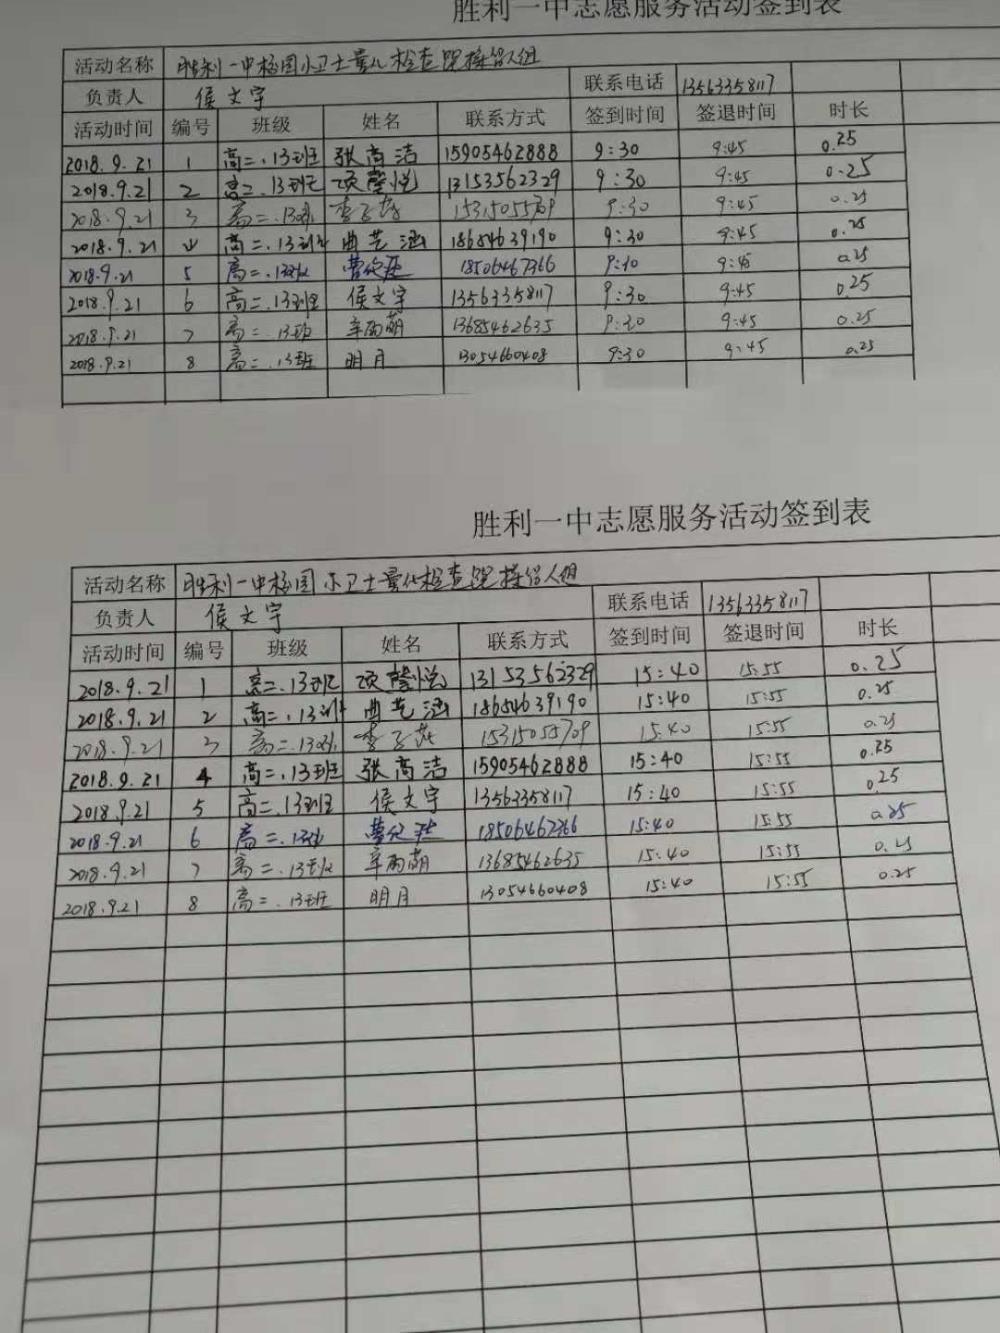 胜利一中志愿服务活动签到表
活动名称 胜利一中校园小卫士量化检查跑操组
负责人 侯文宇 联系电话 13563358117
活动时间 编号 班级 姓名 联系方式 签到时间 签退时间 时长
2018.9.21 1 高二.13班 张高洁 15905462888 9:30 9:45 0.25
2018.9.21 2 高二.13班 项馨悦 13153562329 9:30 9:45 0.25
2018.9.21 3 高二.13班 李子 15315055709 9:30 9:45 0.25
2018.9.21 4 高二.13班 曲艺涵 18654639190 9:30 9:45 0.25
2018.9.21 5 高二.13班 曹 18506467366 9:30 9:45 0.25
2018.9.21 6 高二.13班 侯文宇 13563358117 9:30 9:45 0.25
2018.9.21 7 高二.13班 辛雨萌 13685462635 9:30 9:45 0.25
2018.9.21 8 高二.13班 明月 13054660408 9:30 9:45 0.25
胜利一中志愿服务活动签到表
活动名称 胜利一中校园小卫士量化检查跑操组
负责人 侯文宇 联系电话 13563358117
活动时间 编号 班级 姓名 联系方式 签到时间 签退时间 时长
2018.9.21 1 高二.13班 项馨悦 13153562329 15:40 15:55 0.25
2018.9.21 2 高二.13班 曲艺涵 18654639190 15:40 15:55 0.25
2018.9.21 3 高二.13班 李子 15315055709 15:40 15:55 0.25
2018.9.21 4 高二.13班 张高洁 15905462888 15:40 15:55 0.25
2018.9.21 5 高二.13班 侯文宇 13563358117 15:40 15:55 0.25
2018.9.21 6 高二.13班 曹 18506467366 15:40 15:55 0.25
2018.9.21 7 高二.13班 辛雨萌 13685462635 15:40 15:55 0.25
2018.9.21 8 高二.13班 明月 13054660408 15:40 15:55 0.25